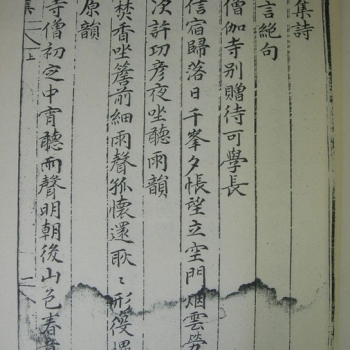 集詩
言絶句
僧伽寺別贈待可學長
信宿歸落日千峯夕悵望立空門烟雲勞
次許功彦夜坐聽雨韻
焚香坐簷前細雨聲孤懷還耿〻形役堪
原韻
寺僧初定中宵聽雨聲明朝後山邑春
上
二